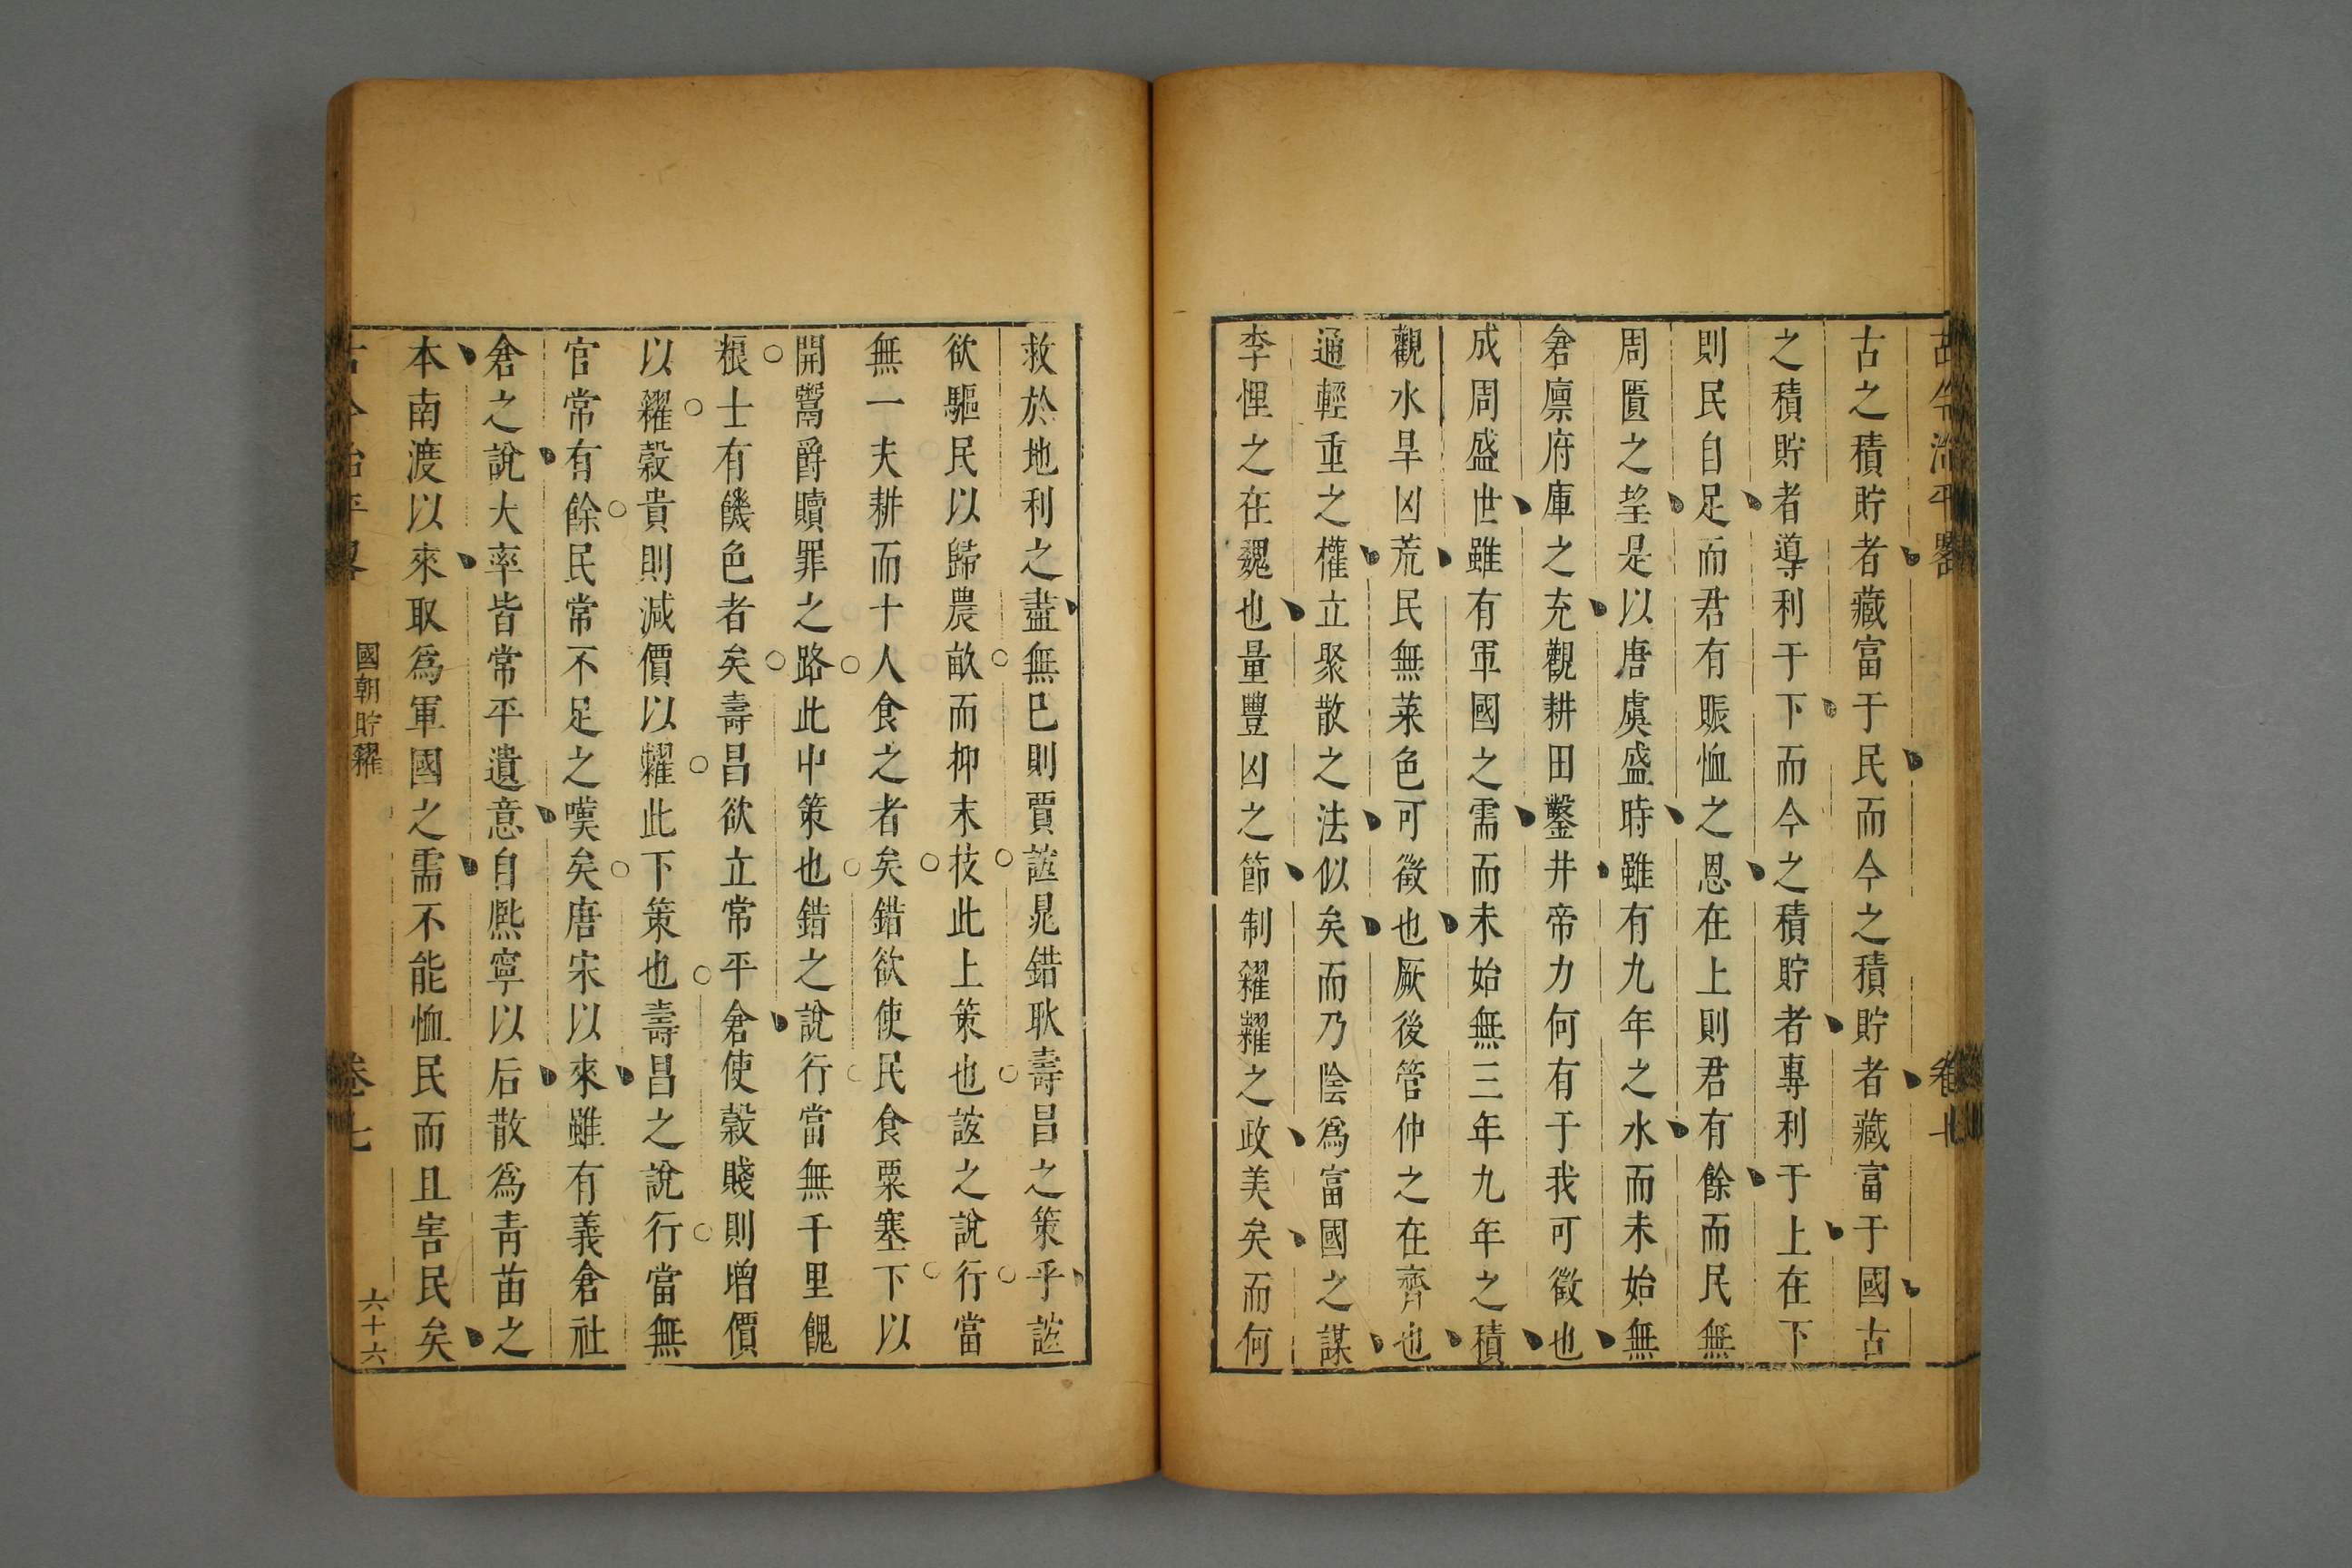 古今治平畧 卷七
古之積貯者藏富于民而今之積貯者藏富于國古
之積貯者導利于下而今之積貯者專利于上在下
則民自足而君有賑恤之恩在上則君有餘而民無
周匱之望是以唐虞盛時雖有九年之水而未始無
倉廪府庫之充觀耕田鑿井帝力何有于我可徵也
成周盛世雖有軍國之需而未始無三年九年之積
觀水旱凶荒民無菜色可徵也厥後管仲之在齊也
通輕重之權立聚散之法似矣而乃陰爲富國之謀
李悝之在魏也量豐凶之節制糴糶之政美矣而何
救於地利之盡無已則賈誼晁錯耿壽昌之策乎誼
欲驅民以歸農畝而抑末技此上策也誼之說行當
無一夫耕而十人食之者矣錯欲使民食粟塞下以
開鬻爵贖罪之路此中策也錯之說行當無千里餽
粮士有饑色者矣壽昌欲立常平倉使穀賤則增價
以糴穀貴則減價以糶此下策也壽昌之說行當無
官常有餘民常不足之嘆矣唐宋以來雖有義倉社
倉之說大率皆常平遺意自熈寧以后散爲青苗之
本南渡以來取爲軍國之需不能恤民而且害民矣
古今治平畧 國朝貯糴 卷七 六十六